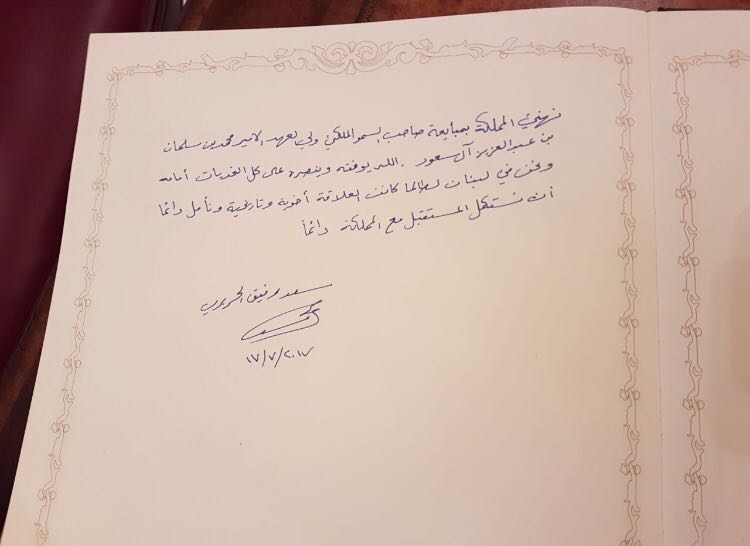 نهنئ المملكة بمبايعة صاحب السمو الملكي ولي العهد الامير محمد بن سلمان
بن عبد العزيز آل سعود . الله يوفقه وينصره على كل التحديات أمامه
ونحن في لبنان لطالما كانت العلاقة أخوية وتاريخية ونأمل دائما
أن نستكمل المستقبل مع المملكة دائماً
سعد رفيق الحريري
١٧/٧/٢٠١٧